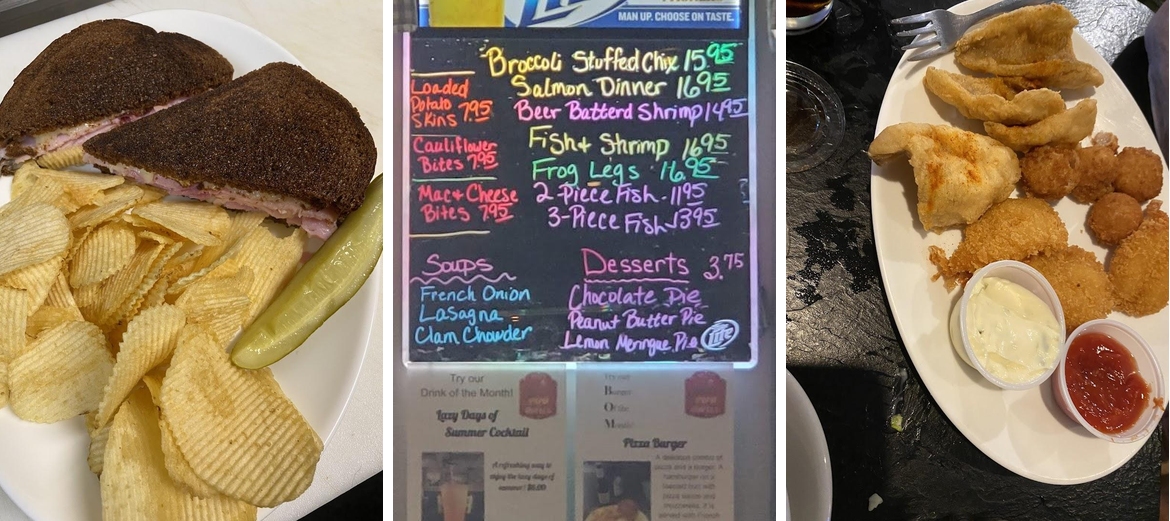 MAN UP. CHOOSE ON TASTE.
Broccoli Stuffed Chix 15.95
Salmon Dinner 16.95
Beer Batterd Shrimp 14.95
Fish + Shrimp 16.95
Frog Legs 16.95
2-Piece Fish - 11.95
3-Piece Fish - 13.95
Loaded
Potato
Skins 7.95
Cauliflower
Bites 7.95
Mac + Cheese
Bites 7.95
Soups
French Onion
Lasagna
Clam Chowder
Desserts 3.75
Chocolate Pie
Peanut Butter Pie
Lemon Meringue Pie
Lite
Try our
Drink of the Month!
Lazy Days of
Summer Cocktail
A refreshing way to
enjoy the lazy days of
summer! $6.00
Try our
Burger
Of the
Month!
Pizza Burger